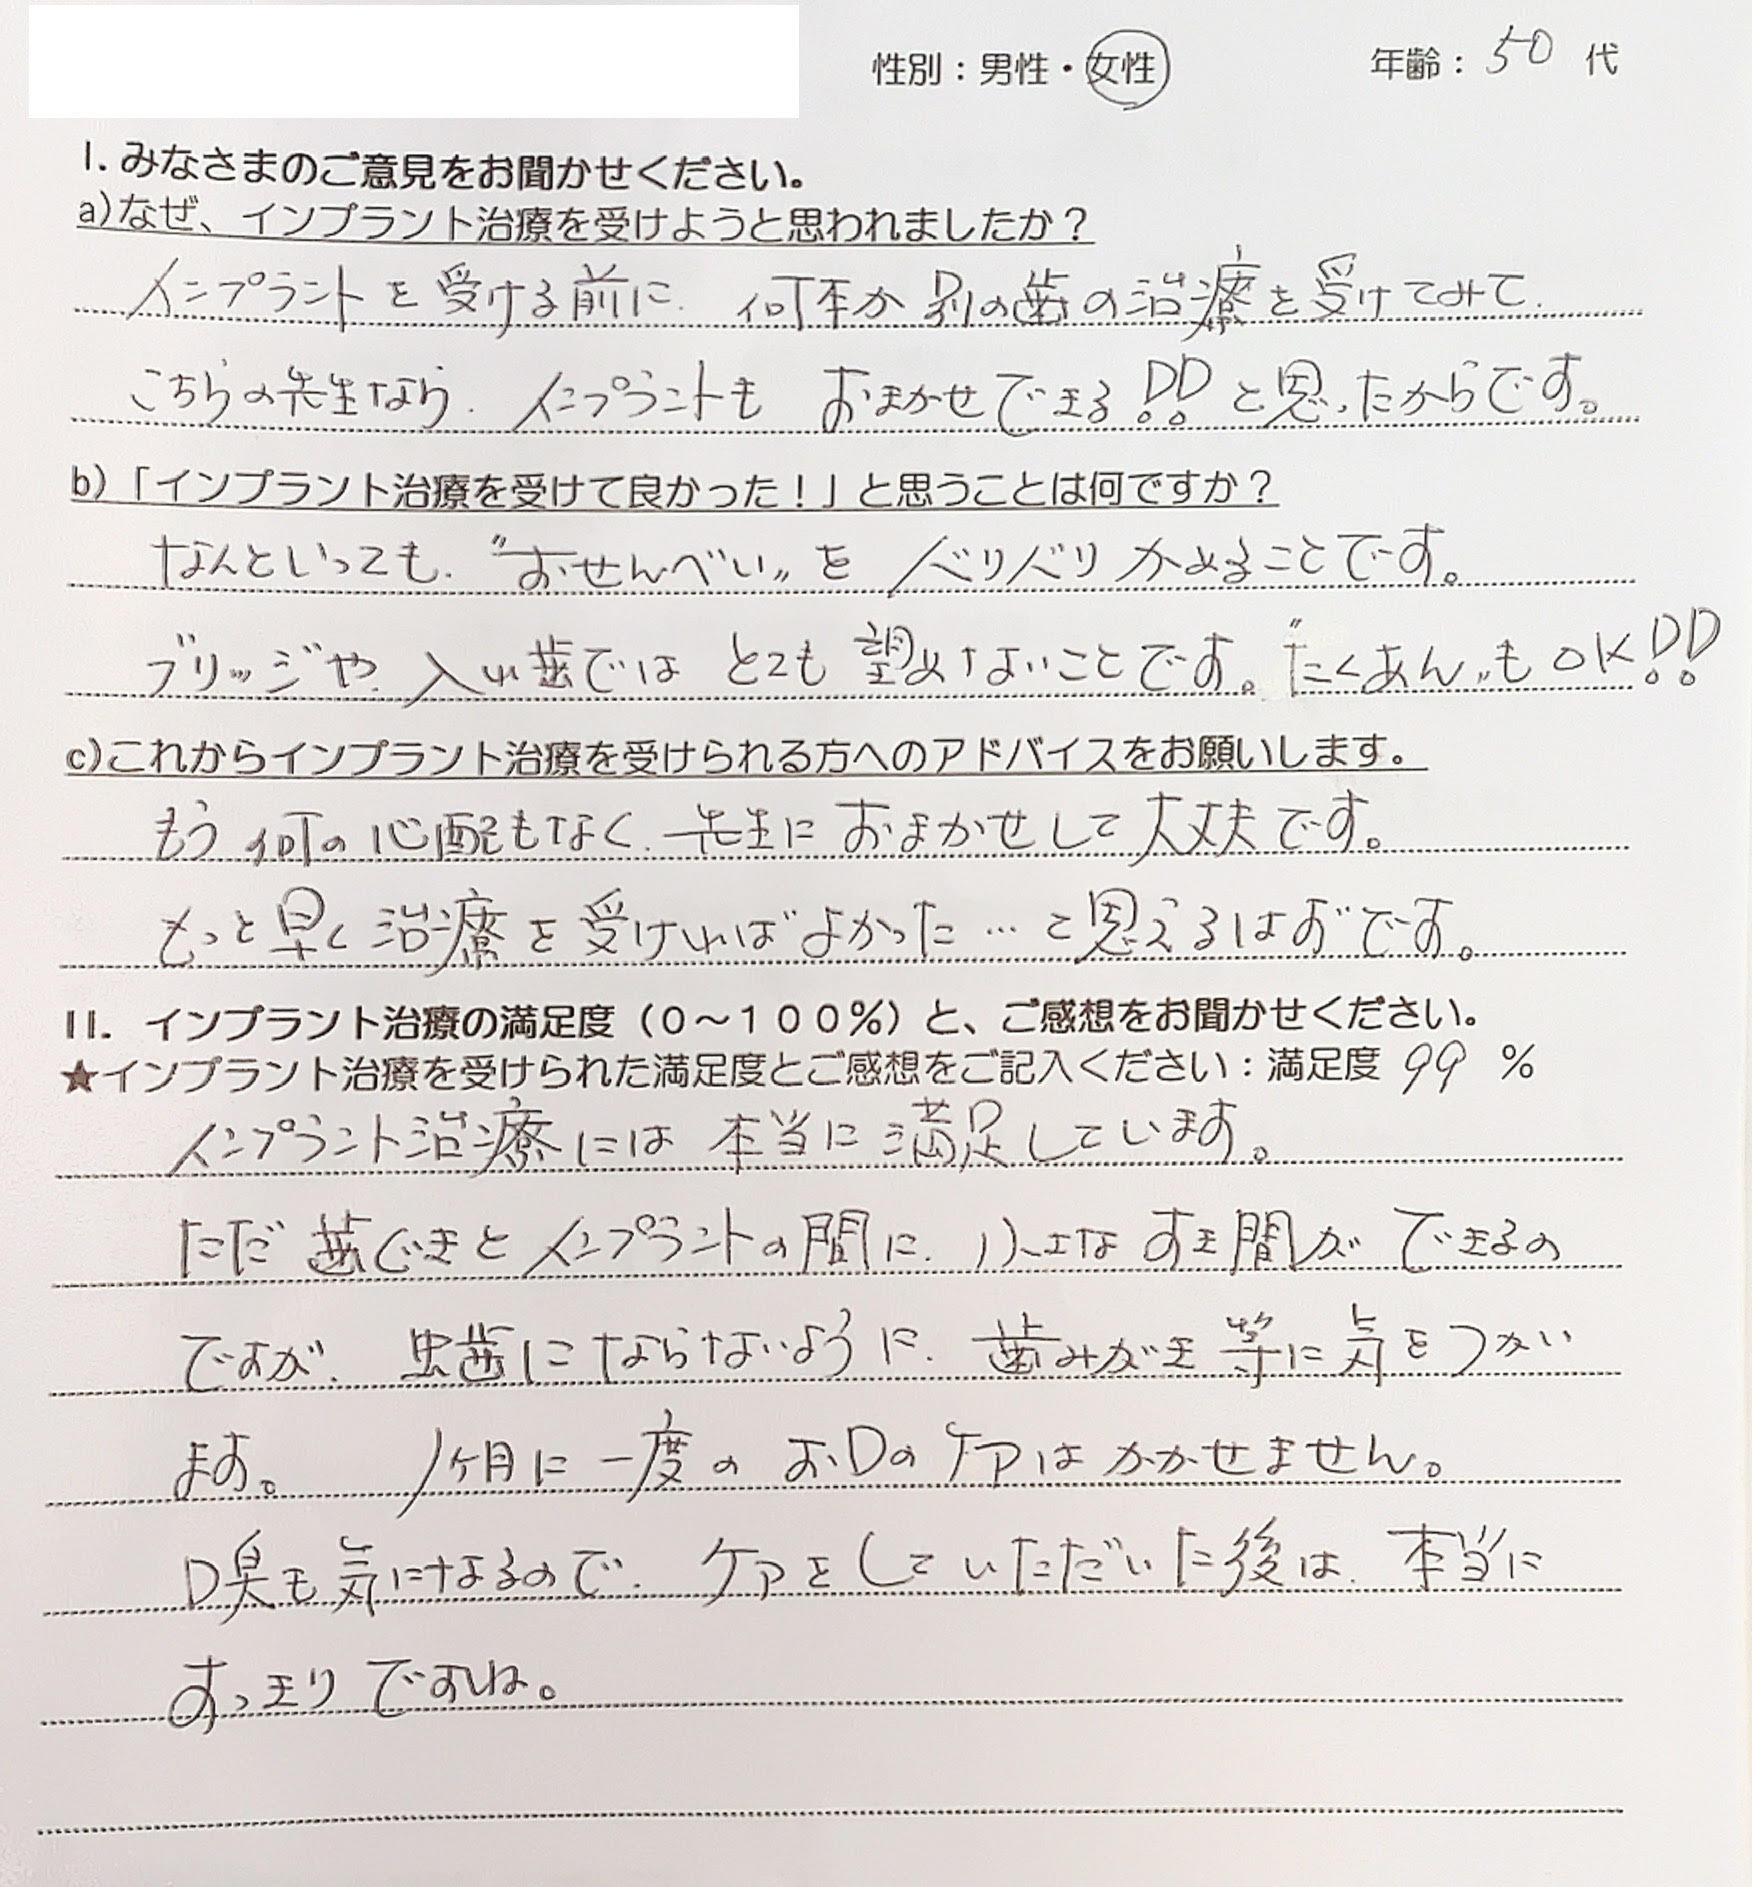 性別：男性・女性　年齢：50代
I. みなさまのご意見をお聞かせください。
a)なぜ、インプラント治療を受けようと思われましたか？
インプラントを受ける前に、何本か別の歯の治療を受けてみて、
こちらの先生なら、インプラントもおまかせできる!!と思ったからです。
b)「インプラント治療を受けて良かった！」と思うことは何ですか？
なんといっても、"おせんべい"をバリバリかめることです。
ブリッジや、入れ歯ではとても望めないことです。"たくあん"もOK!!
c)これからインプラント治療を受けられる方へのアドバイスをお願いします。
もう何の心配もなく、先生におまかせして大丈夫です。
もっと早く治療を受ければよかった…と思えるはずです。
II. インプラント治療の満足度（０～１００％）と、ご感想をお聞かせください。
★インプラント治療を受けられた満足度とご感想をご記入ください：満足度 99 ％
インプラント治療には本当に満足しています。
ただ歯ぐきとインプラントの間に、小さなすき間ができるの
ですが、虫歯にならないように、歯みがき等に気をつかい
ます。　1ヶ月に一度のお口のケアはかかせません。
口臭も気になるので、ケアをしていただいた後は、本当に
すっきりですね。